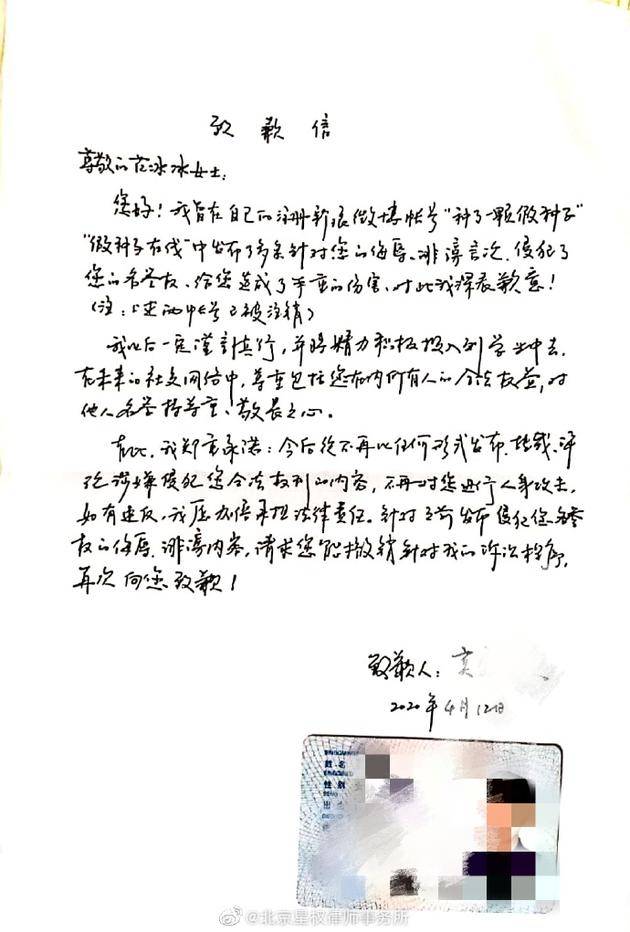 致歉信
尊敬的范冰冰女士:
您好!我曾在自己的注册新浪微博帐号"种了一颗微种子"
"微种子在线"中发布了多条针对您的侮辱、诽谤言次,侵犯了
您的名誉权,给您造成了严重的伤害,对此我深表歉意!
(注:上述两个帐号已被注销)
我以后一定谨言慎行,并将精力积极投入到学业中去,
在未来的社交网络中,尊重包括您在内所有人的合法权益,对
他人名誉持尊重、敬畏之心。
在此,我郑重承诺:今后绝不再以任何形式发布、转载、评
论涉嫌侵犯您合法权利的内容,不再对您进行人身攻击,
如有违反,我愿加倍承担法律责任。针对之前发布侵犯您名誉
权的侮辱、诽谤内容,请求您能撤销针对我的诉讼程序,
再次向您致歉!
致歉人:
2020年4月12日
姓名
性别
出
@北京星权律师事务所